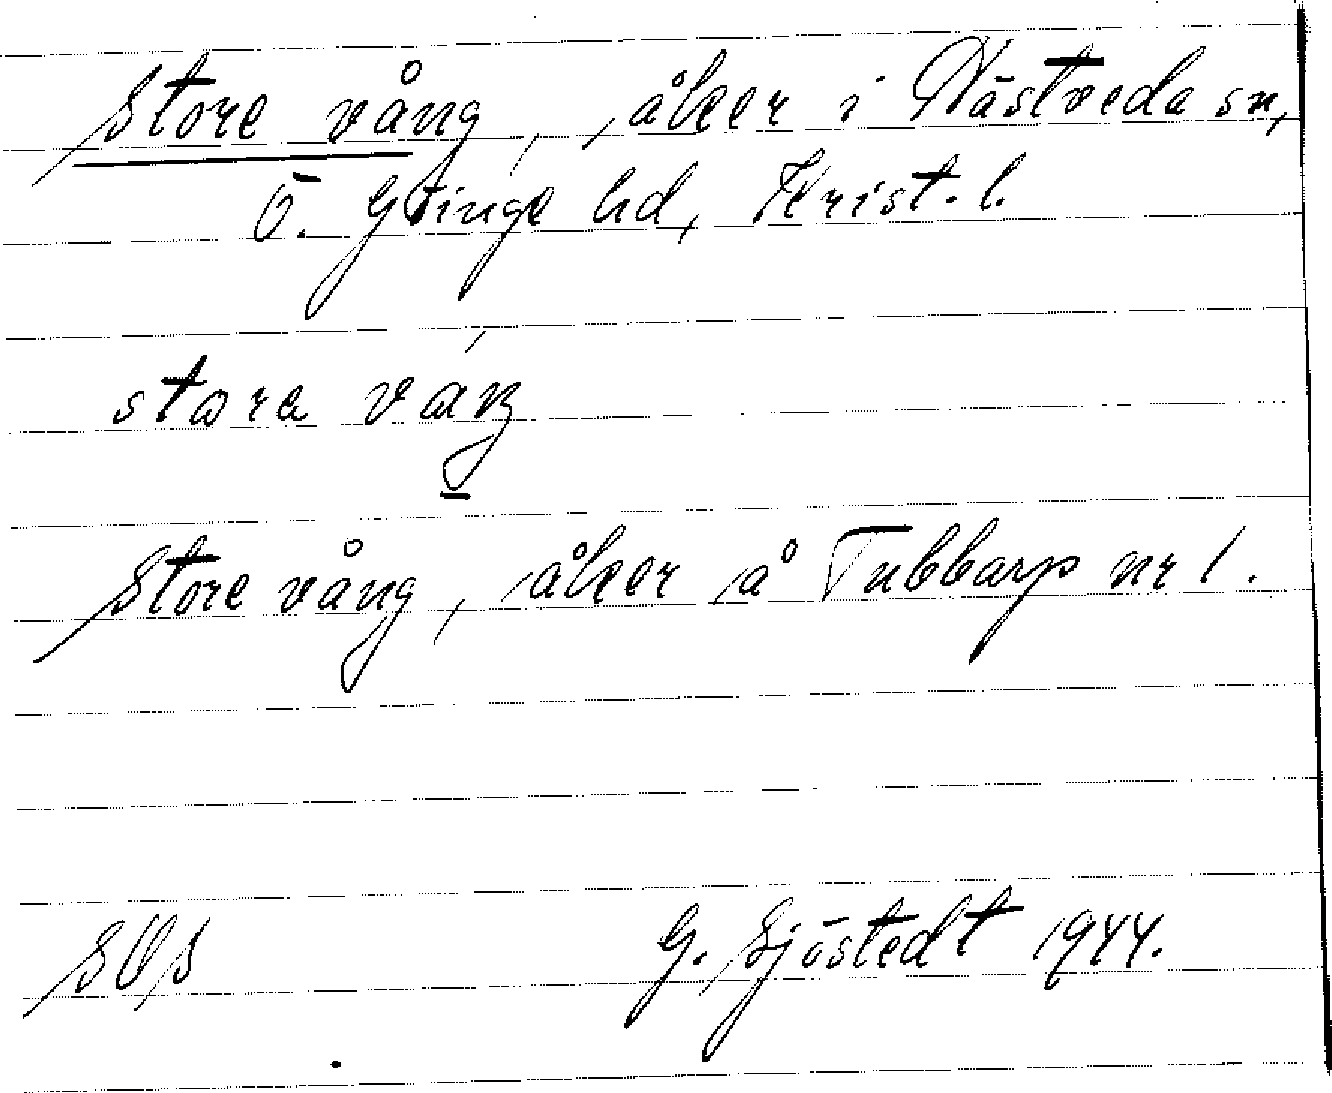 Store vång, åker i Västveda sn,
Ö. Göinge hd, Krist. l.
store váŋ
Store vång, åker å Tubbarp nr 1.
SOS G. Sjöstedt 1944.